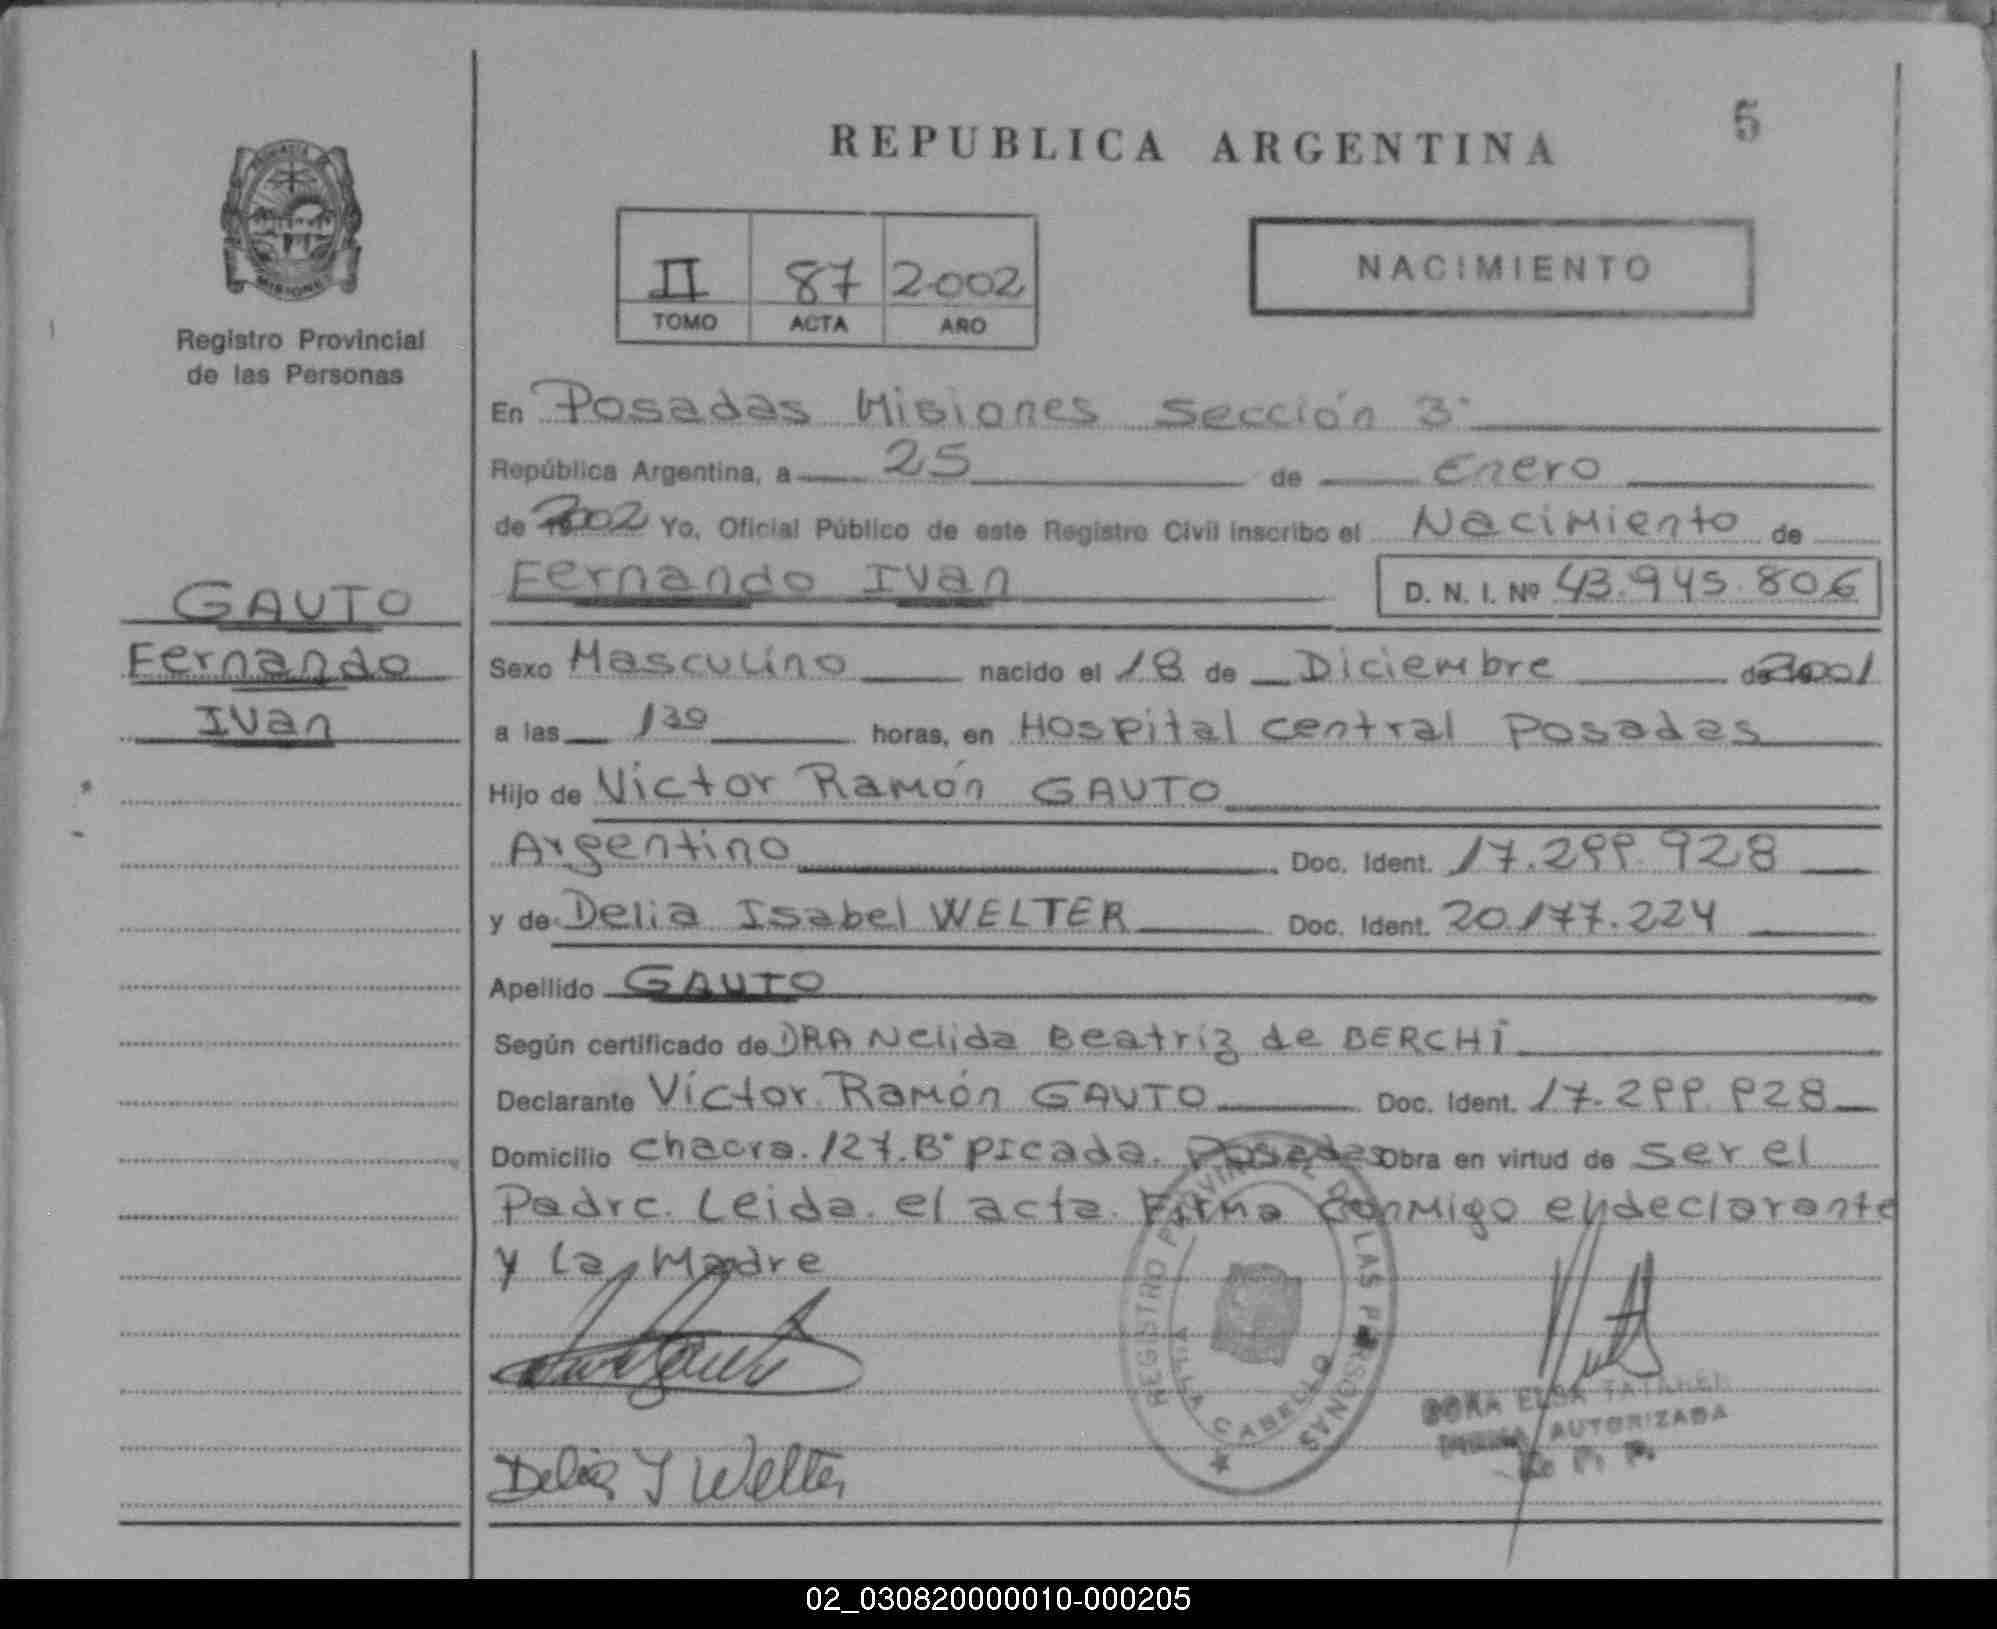 5
REPUBLICA ARGENTINA
II 87 2002
TOMO ACTA AÑO
NACIMIENTO
MISIONES
Registro Provincial
de las Personas
En Posadas Misiones Sección 3ª
República Argentina, a 25 de Enero
de 2002 Yo, Oficial Público de este Registro Civil inscribo el Nacimiento de
Fernando Ivan D. N. I. Nº 43.945.806
GAUTO
Fernando
Ivan
Sexo Masculino nacido el 18 de Diciembre de 2001
a las 1 30 horas, en Hospital central Posadas
Hijo de Victor Ramón GAUTO
Argentino Doc. Ident. 17.299.928
y de Delia Isabel WELTER Doc. Ident. 20.177.224
Apellido GAUTO
Según certificado de DRA Nelida Beatriz de BERCHI
Declarante Víctor Ramón GAUTO Doc. Ident. 17.299.928
Domicilio Chacra.127.Bº Picada. Posadas Obra en virtud de ser el
Padre. Leida el acta Firma conmigo el declarante
y la Madre
REGISTRO PROVINCIAL DE LAS PERSONAS
VILLA CABELLO
ELSA
AUTORIZADA
Delia I Welter
02_030820000010-000205